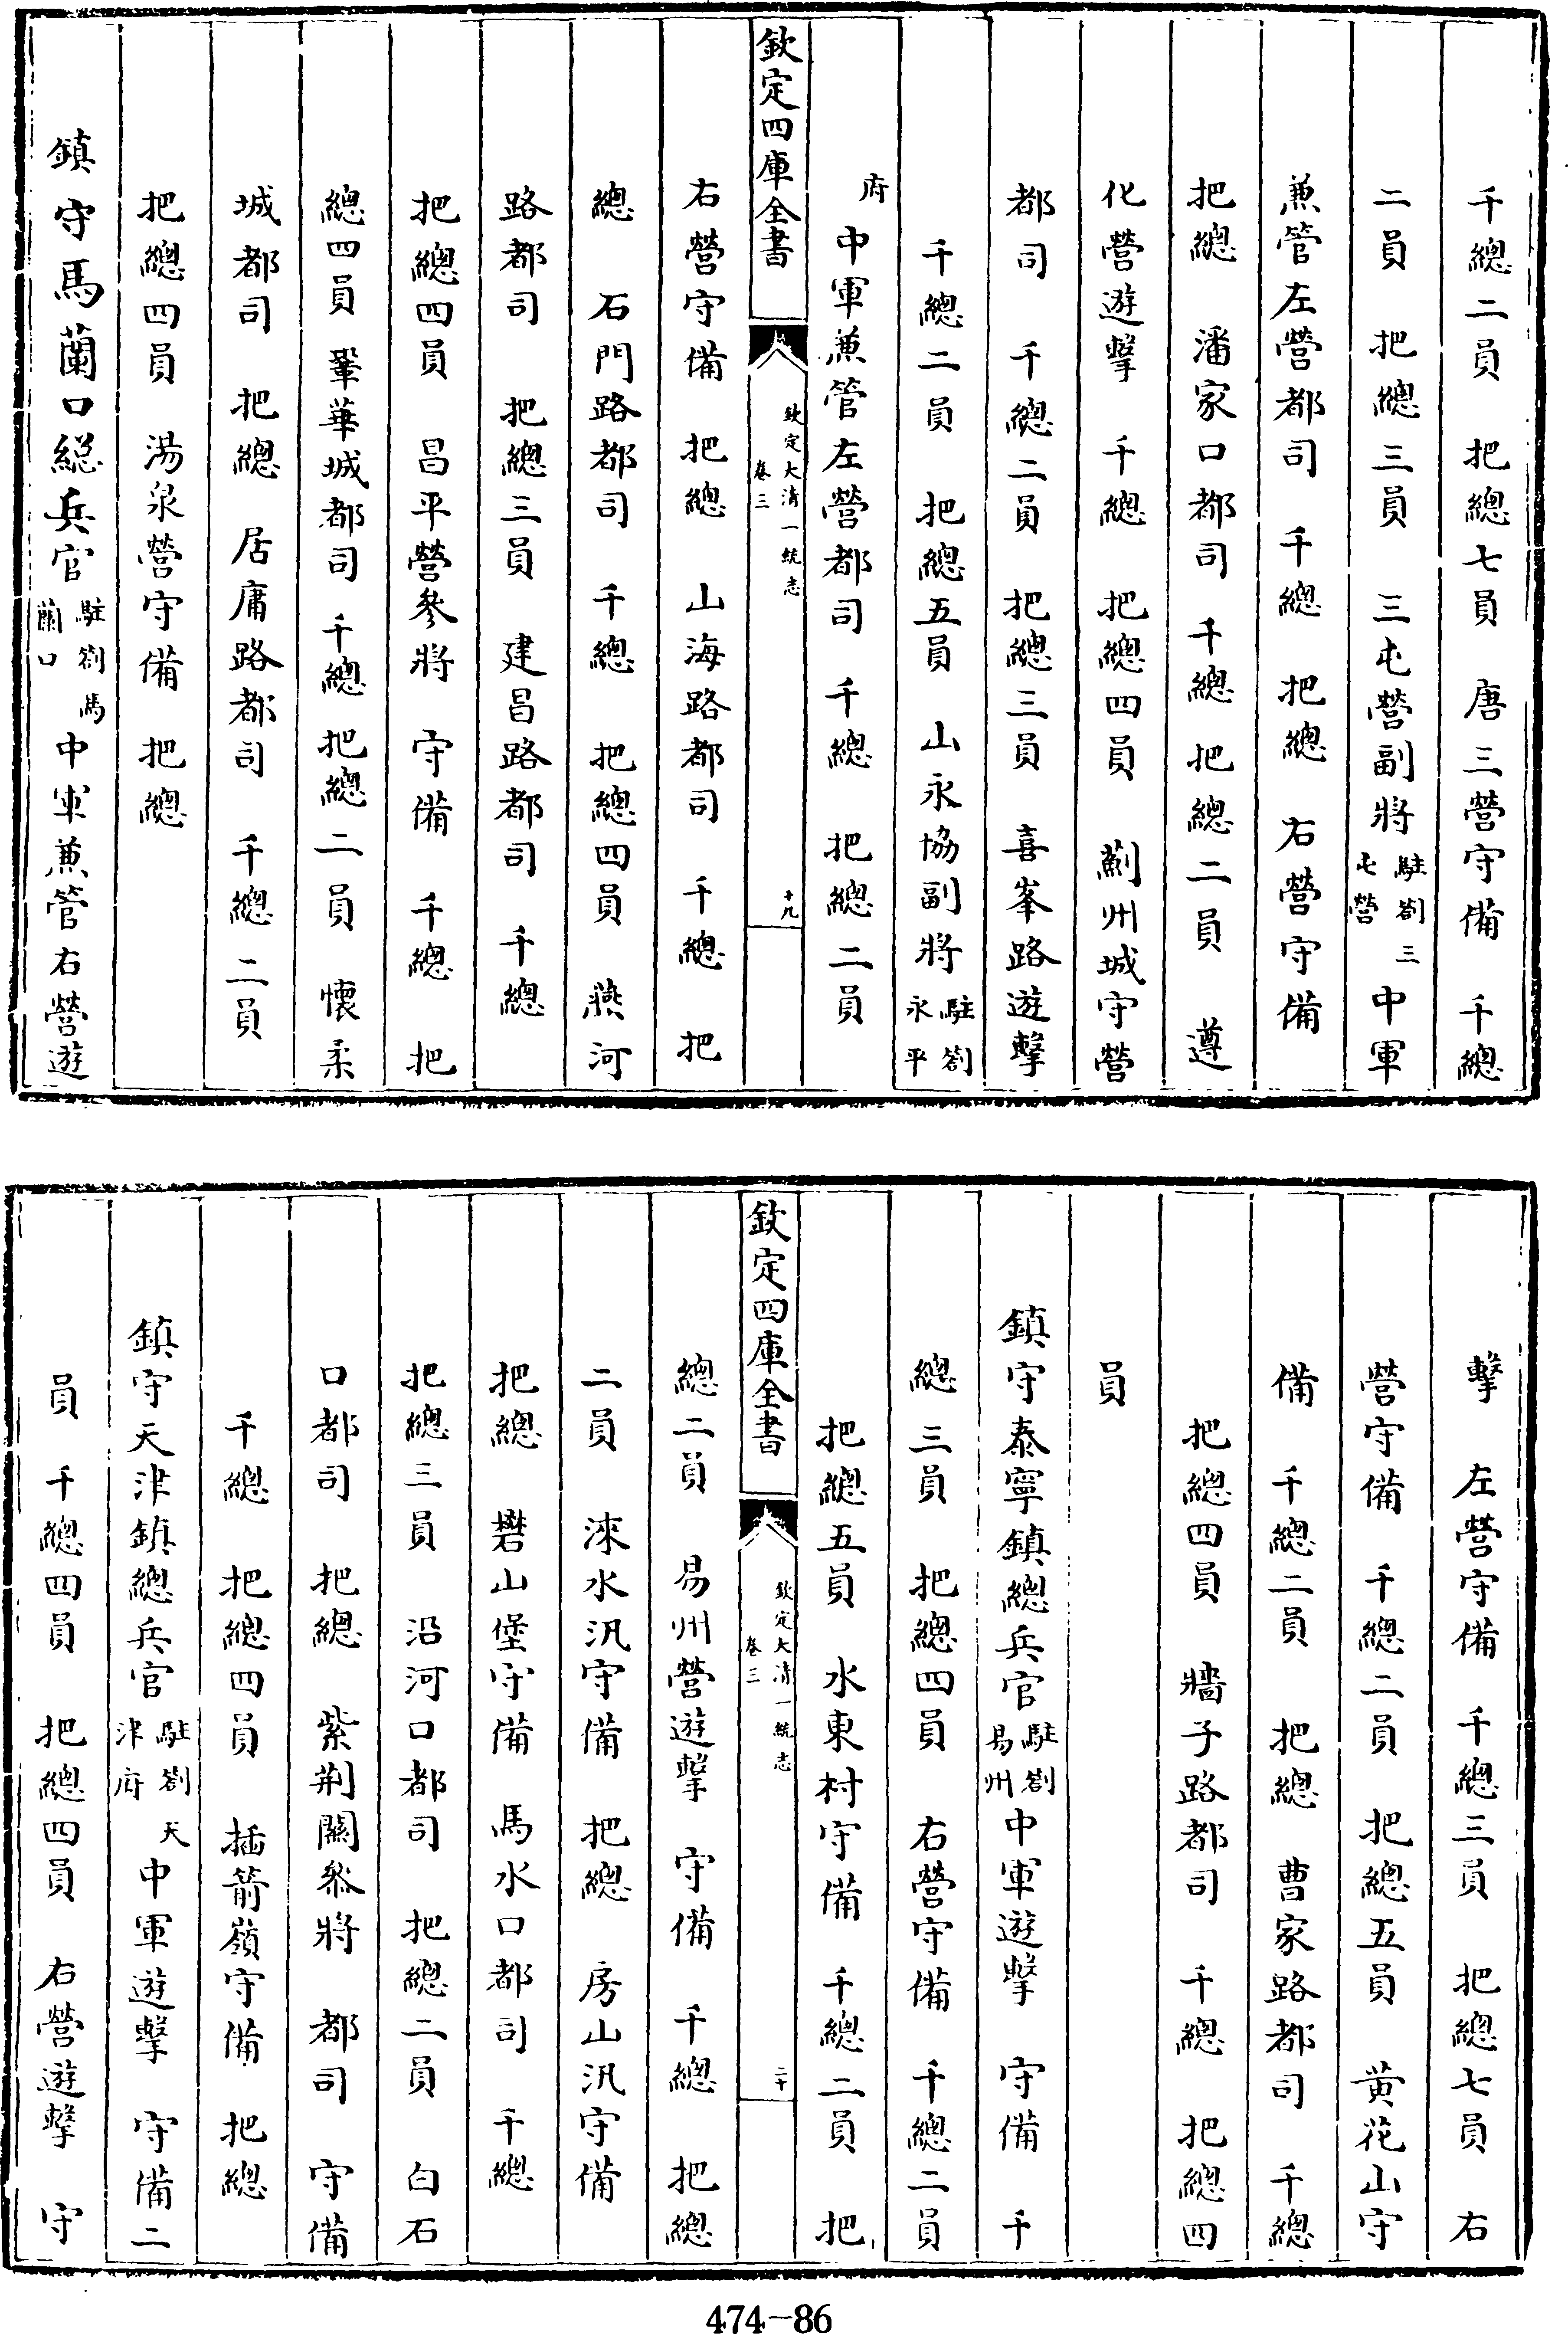 千總二員　把總七員　唐三營守備　千總
二員　把總三員　三屯營副將駐劄三屯營中軍
兼管左營都司　千總　把總　右營守備
把總　潘家口都司　千總　把總二員　遵
化營遊擊　千總　把總四員　薊州城守營
都司　千總二員　把總三員　喜峯路遊擊
千總二員　把總五員　山永協副將駐劄永平
府　中軍兼管左營都司　千總　把總二員
欽定四庫全書
欽定大清一統志
卷三
十九
右營守備　把總　山海路都司　千總　把
總　石門路都司　千總　把總四員　燕河
路都司　把總三員　建昌路都司　千總
把總四員　昌平營參將　守備　千總　把
總四員　鞏華城都司　千總　把總二員　懷柔
城都司　把總　居庸路都司　千總二員
把總四員　湯泉營守備　把總
鎮守馬蘭口總兵官駐劄馬蘭口　中軍兼管右營遊
擊　左營守備　千總三員　把總七員　右
營守備　千總二員　把總五員　黄花山守
備　千總二員　把總　曹家路都司　千總
把總四員　牆子路都司　千總　把總四
員
鎮守泰寧鎮總兵官駐劄易州中軍遊擊　守備　千
總三員　把總四員　右營守備　千總二員
把總五員　水東村守備　千總二員　把
欽定四庫全書
欽定大清一統志
卷三
二十
總二員　易州營遊擊　守備　千總　把總
二員　淶水汛守備　把總　房山汛守備
把總　礬山堡守備　馬水口都司　千總
把總三員　沿河口都司　把總二員　白石
口都司　把總　紫荆關叅將　都司　守備
千總　把總四員　插箭嶺守備　把總
鎮守天津鎮總兵官駐劄天津府　中軍遊擊　守備二
員　千總四員　把總四員　右營遊擊　守
474-86